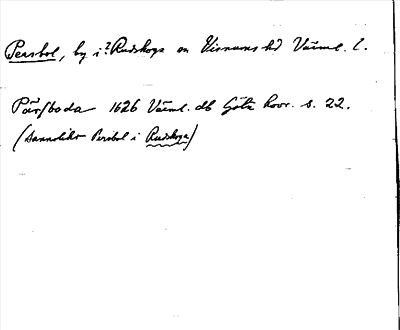 Persbol, by i? Rudskoga sn Visnums hd Värml. l.
Pärsboda 1626 Värml. db Götz hovr. s. 22.
(sannolikt Persbol i Rudskoga)